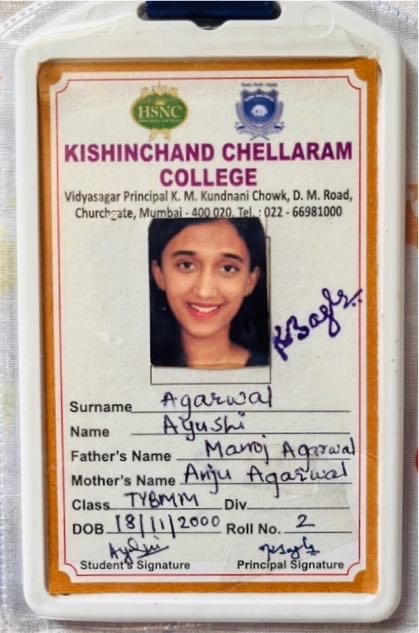 HSNC
KISHINCHAND CHELLARAM
COLLEGE
Vidyasagar Principal K. M. Kundnani Chowk, D. M. Road,
Churchgate, Mumbai - 400 020. Tel. : 022 - 66981000
Surname Agarwal
Name Ayushi
Father's Name Manoj Agarwal
Mother's Name Anju Agarwal
Class TYBMM Div
DOB 18/11/2000 Roll No. 2
Student's Signature Principal Signature